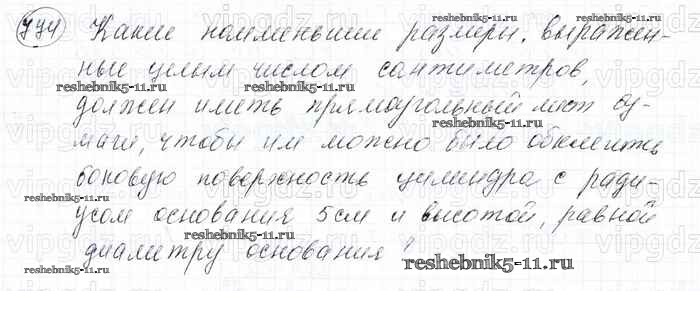 744 Какие наименьшие размеры, выражен-
ные целым числом сантиметров,
должен иметь прямоугольный лист бу-
маги, чтобы им можно было обклеить
боковую поверхность цилиндра с ради-
усом основания 5 см и высотой, равной
диаметру основания?
reshebnik5-11.ru
reshebnik5-11.ru
reshebnik5-11.ru
reshebnik5-11.ru
reshebnik5-11.ru
reshebnik5-11.ru
reshebnik5-11.ru